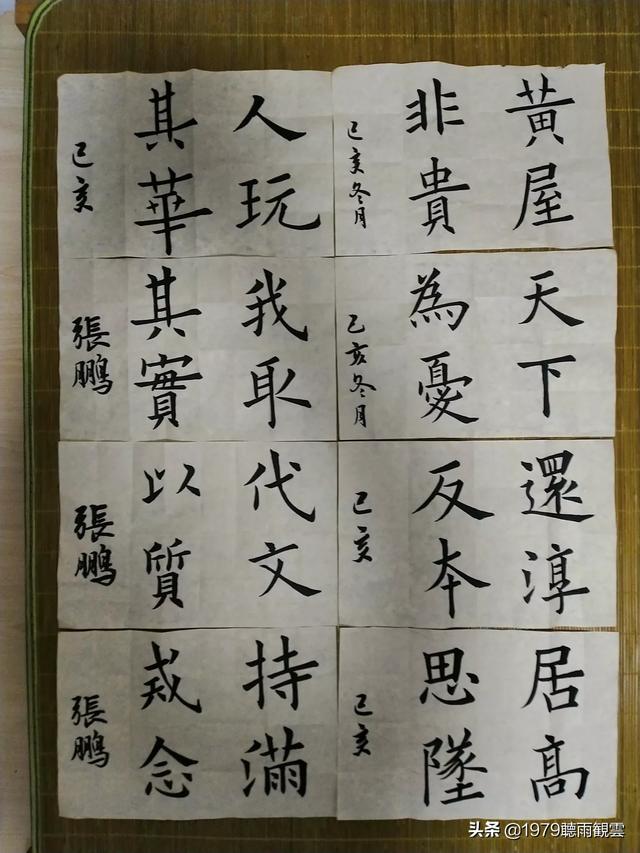 黄屋
非貴
己亥冬月
人玩
其華
己亥
天下
為憂
己亥冬月
我取
其實
張鹏
還淳
反本
己亥
代文
以質
張鹏
居高
思墜
己亥
持滿
戒念
張鹏
头条 @1979聽雨観雲